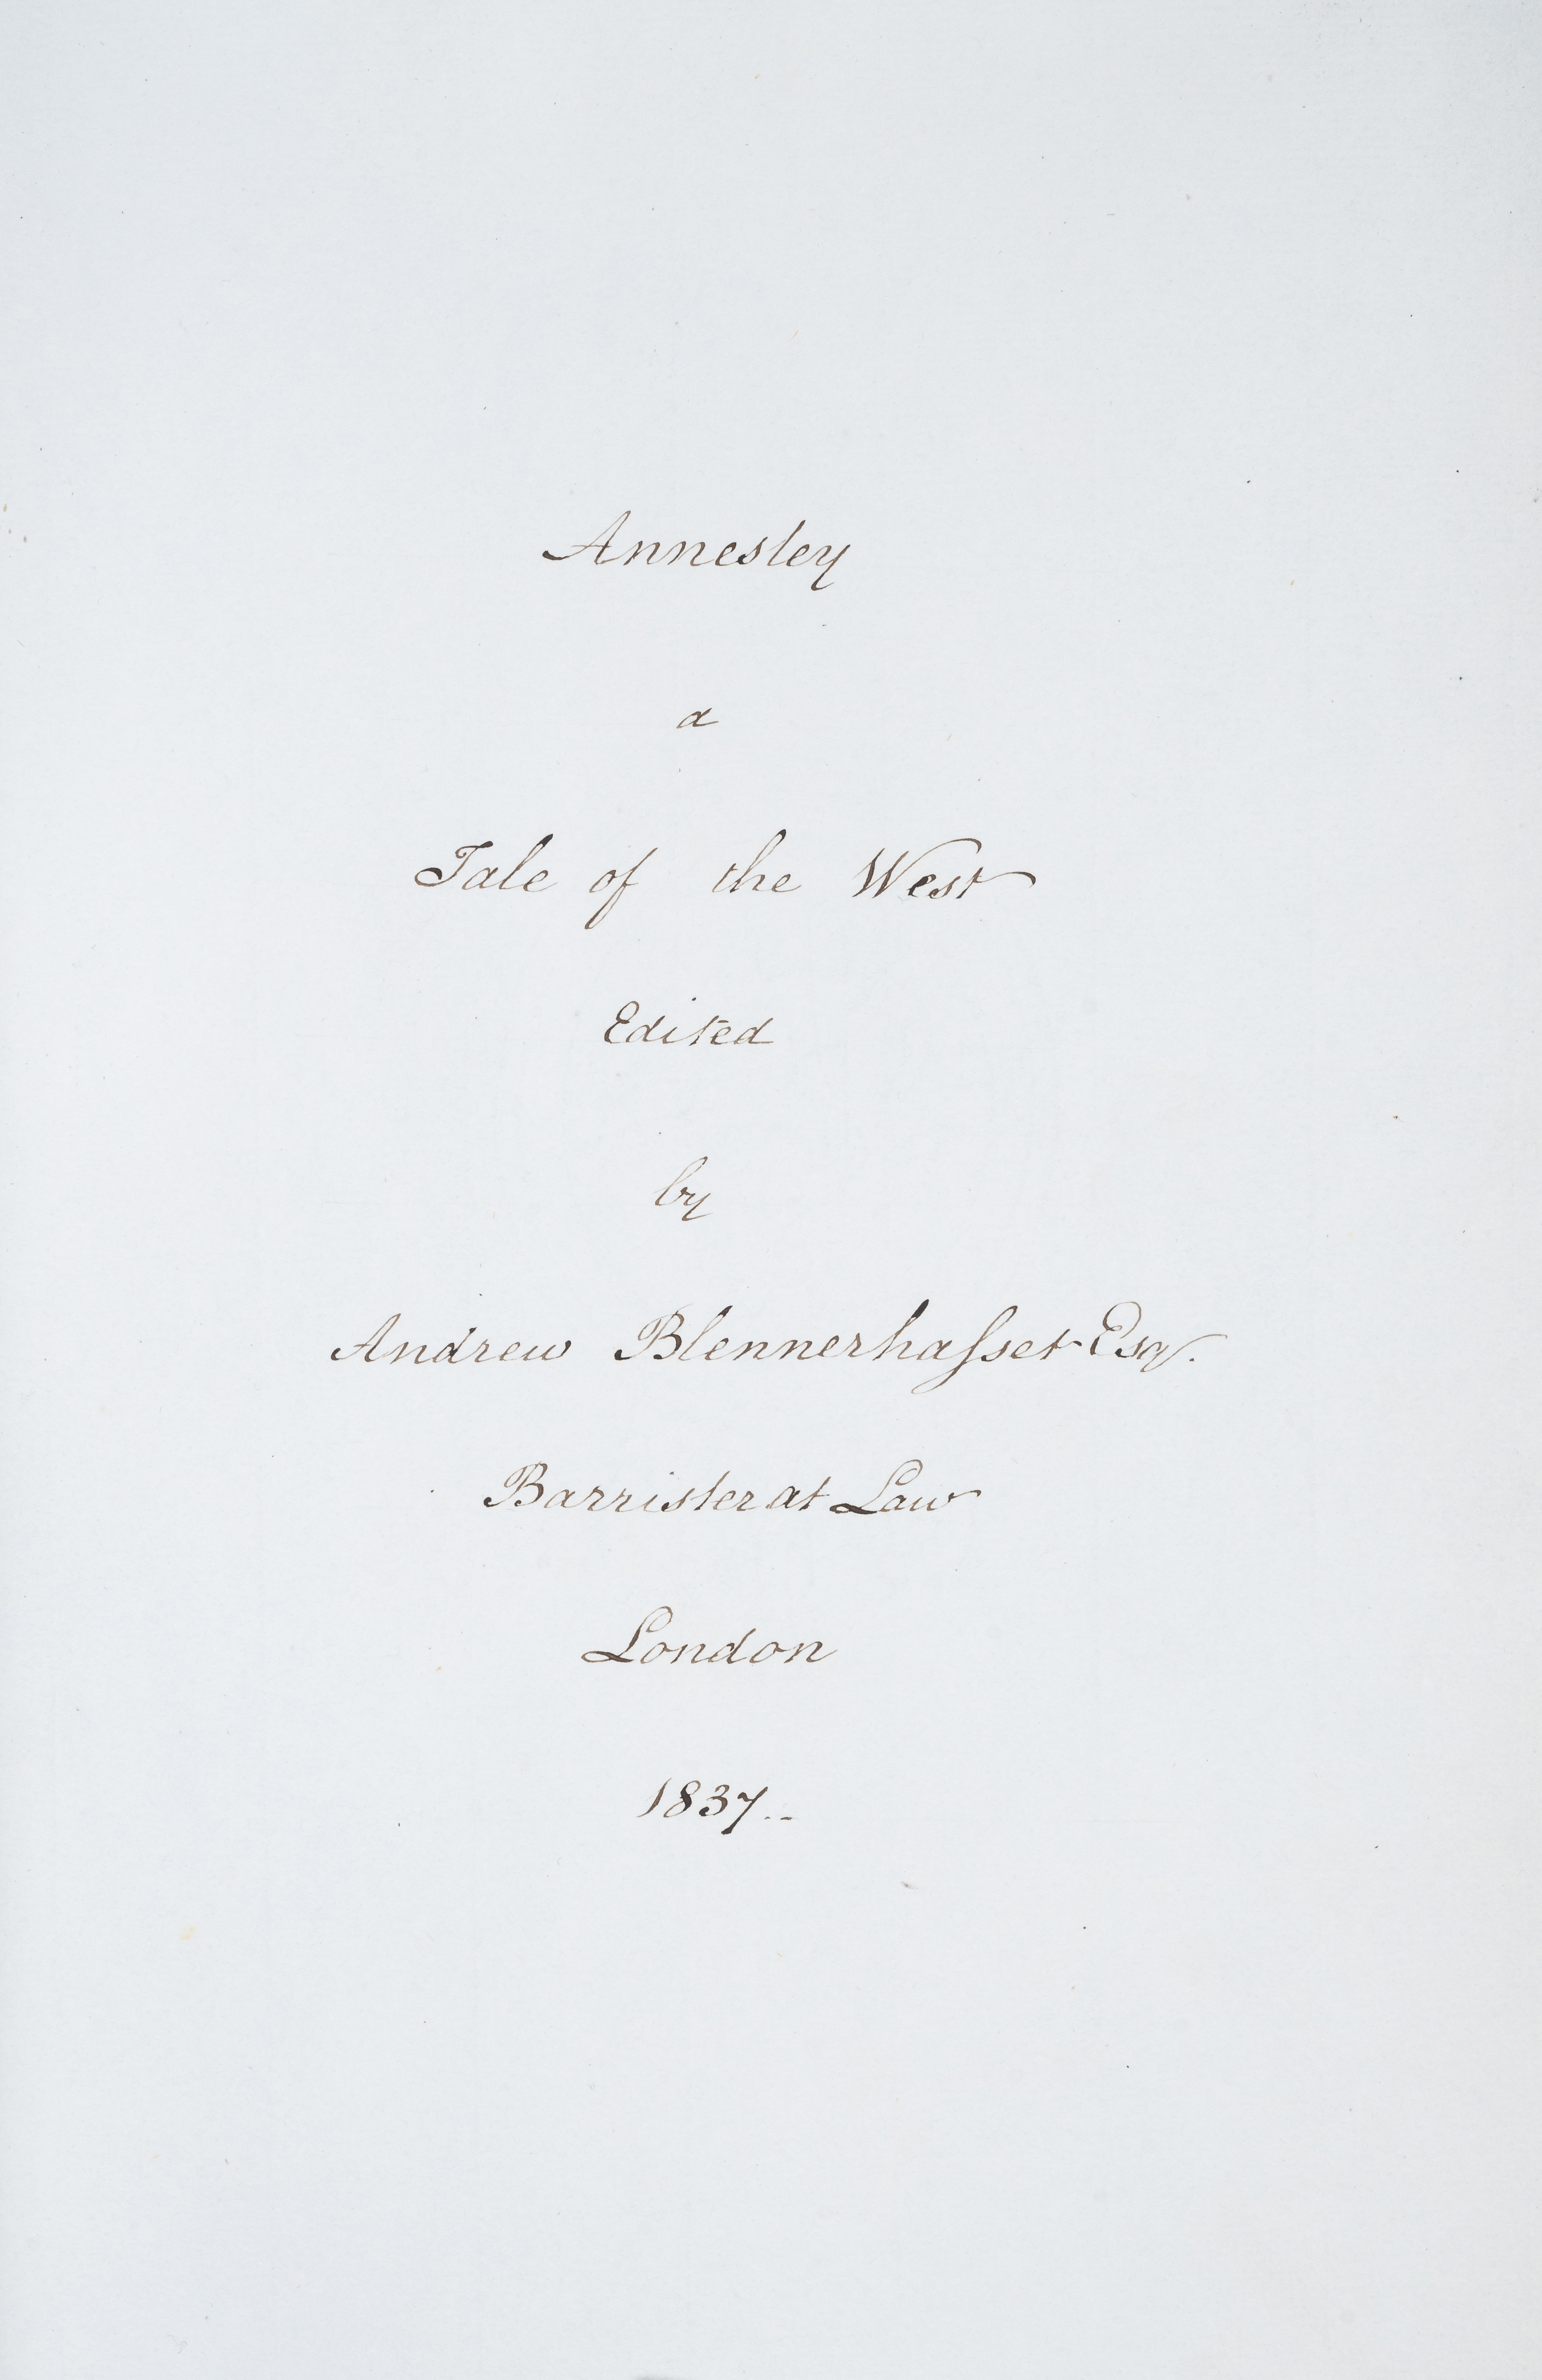 Annesley
a
Tale of the West
Edited
by
Andrew Blennerhaſset Esq.
Barrister at Law
London
1837..